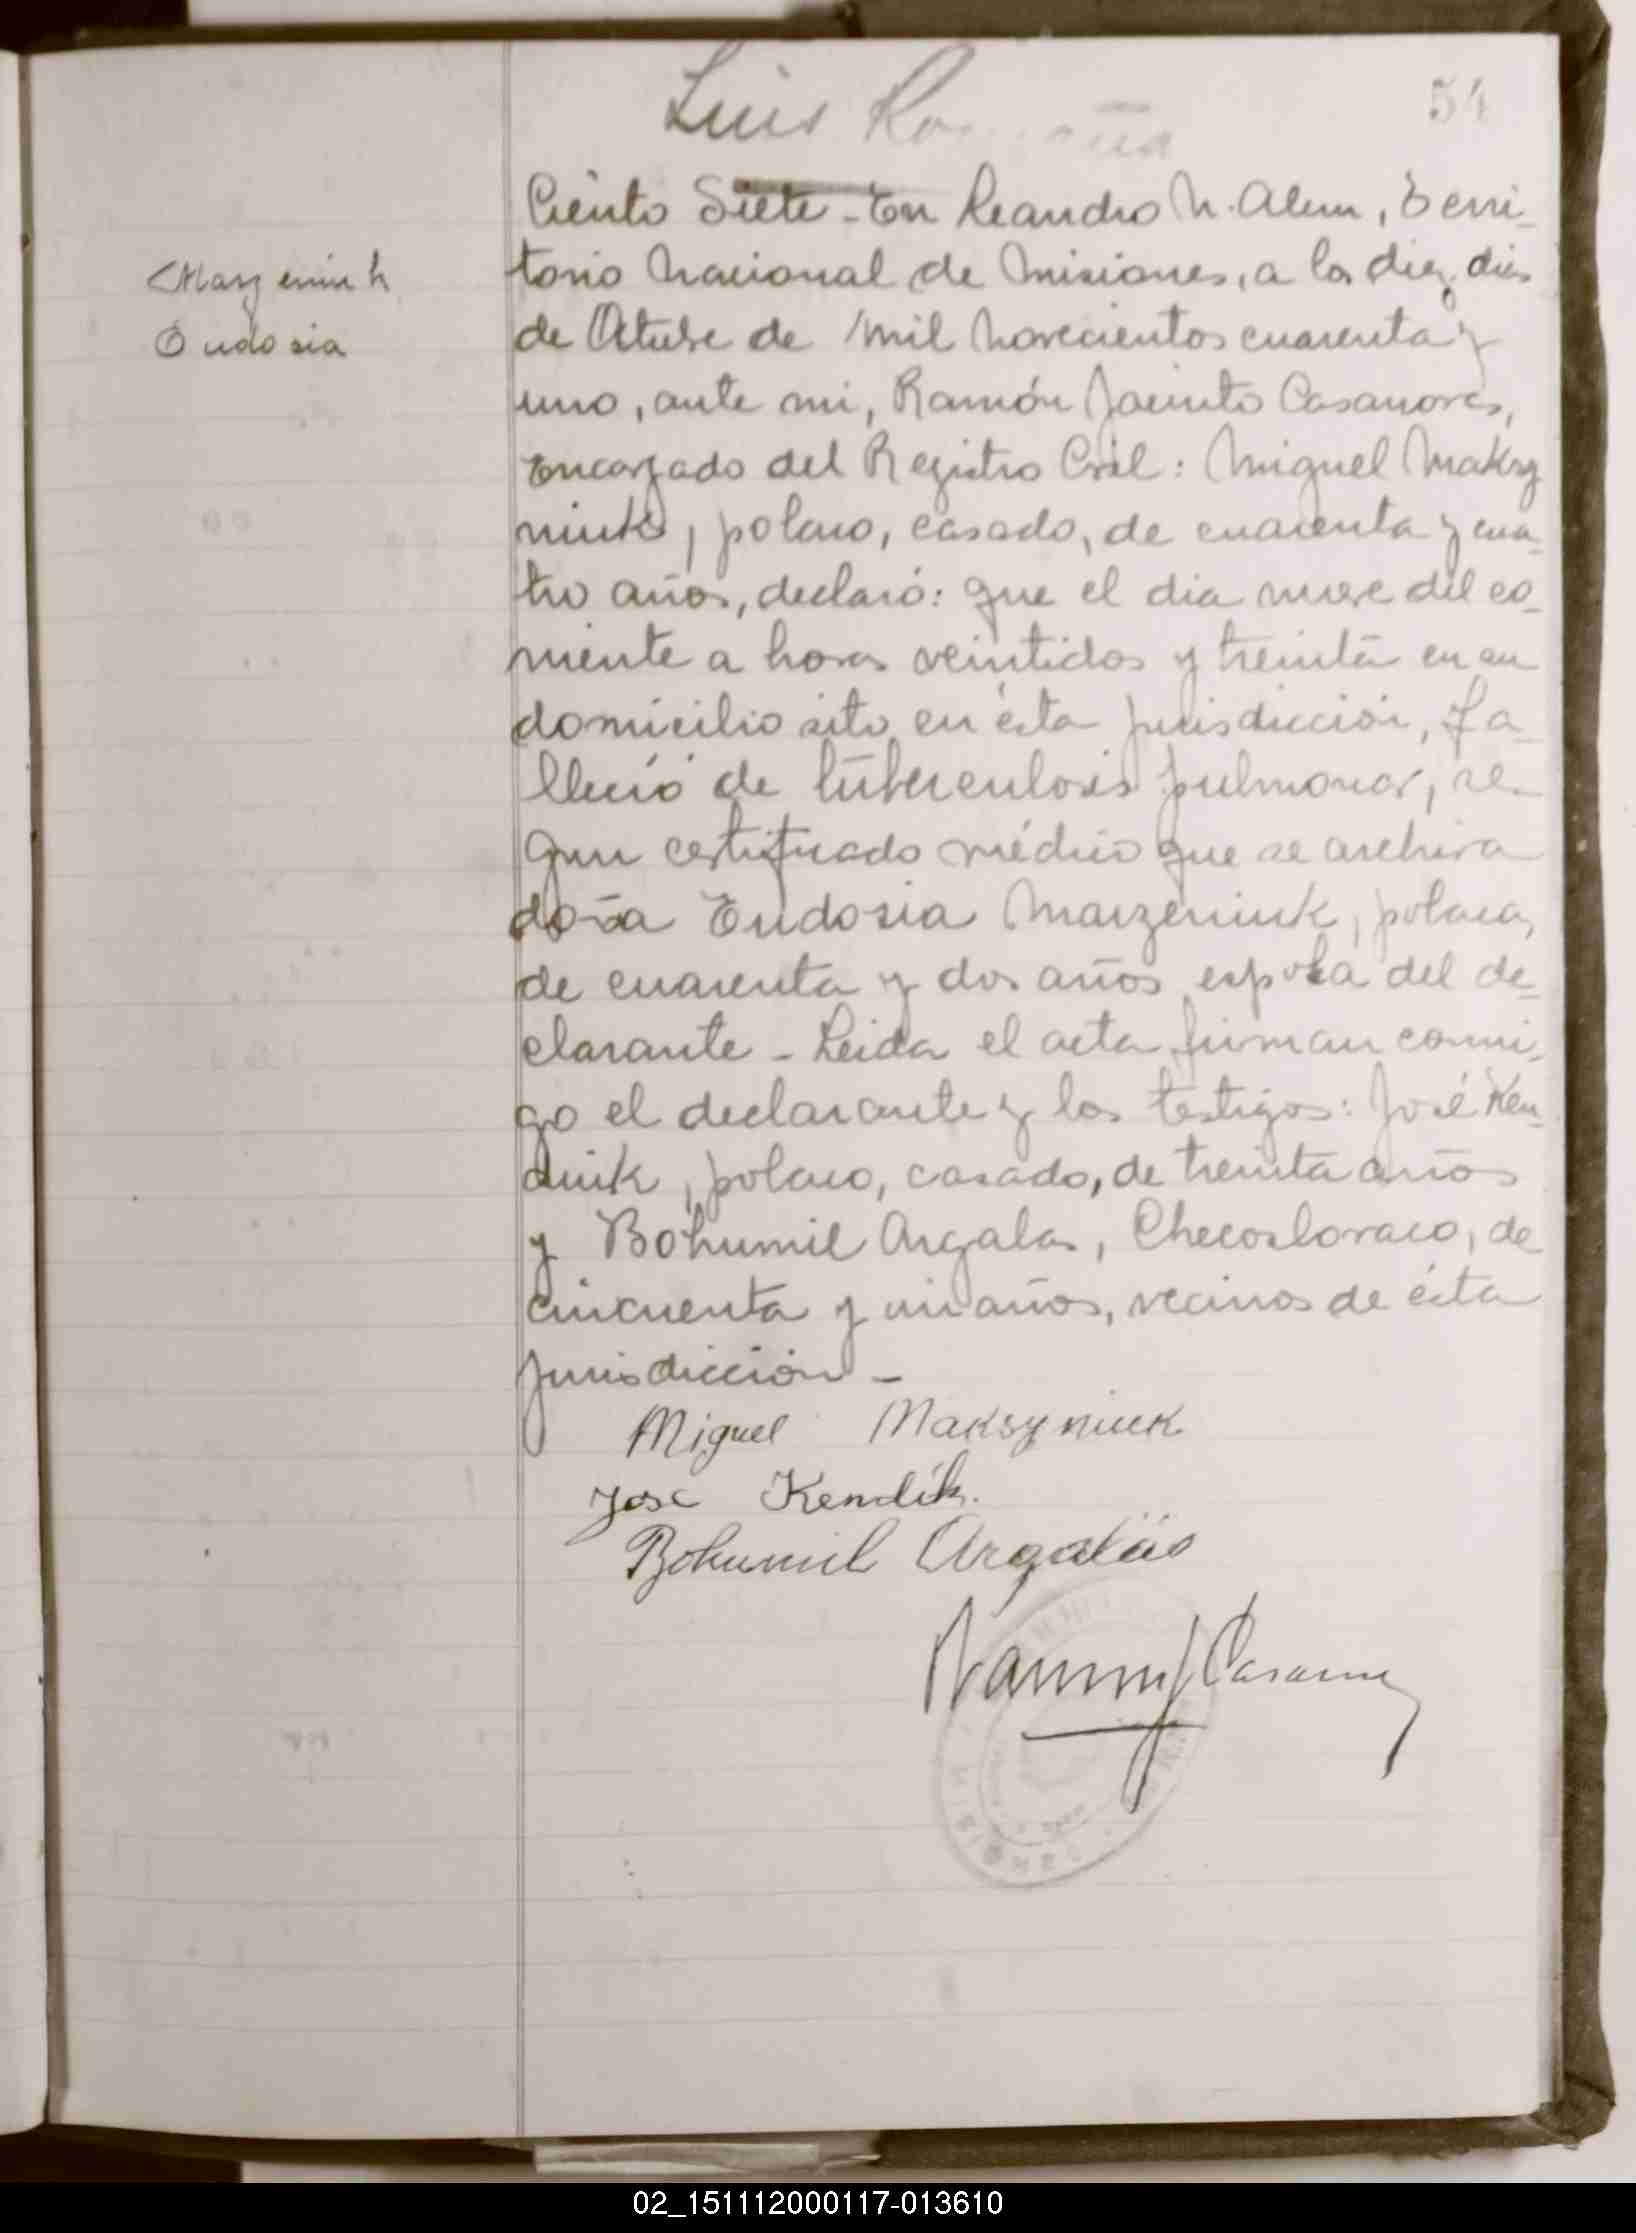 Luis
54
Marzeniuk
Eudosia
Ciento Siete - En Leandro N. Alem, Terri-
torio Nacional de Misiones, a los diez dias
de Octubre de mil novecientos cuarenta y
uno, ante mi, Ramón Jacinto Casanovas,
Encargado del Registro Civil: Miguel Maksy
niuk, polaco, casado, de cuarenta y cua-
tro años, declaró: que el dia nueve del co-
rriente a horas veintidos y treinta en su
domicilio sito en ésta jurisdicción, fa-
lleció de tuberculosis pulmonar, se-
gun certificado médico que se archiva
doña Eudosia Marzeniuk, polaca,
de cuarenta y dos años esposa del de-
clarante - Leida el acta firman conmi-
go el declarante y los testigos: José Ken-
dik, polaco, casado, de treinta años
y Bohumil Argalas, Checoslovaco, de
cincuenta y un años, vecinos de ésta
jurisdicción -
Miguel Maksyniuk
Jose Kendik.
Bohumil Argalás
Ramon J Casanovas
02_151112000117-013610